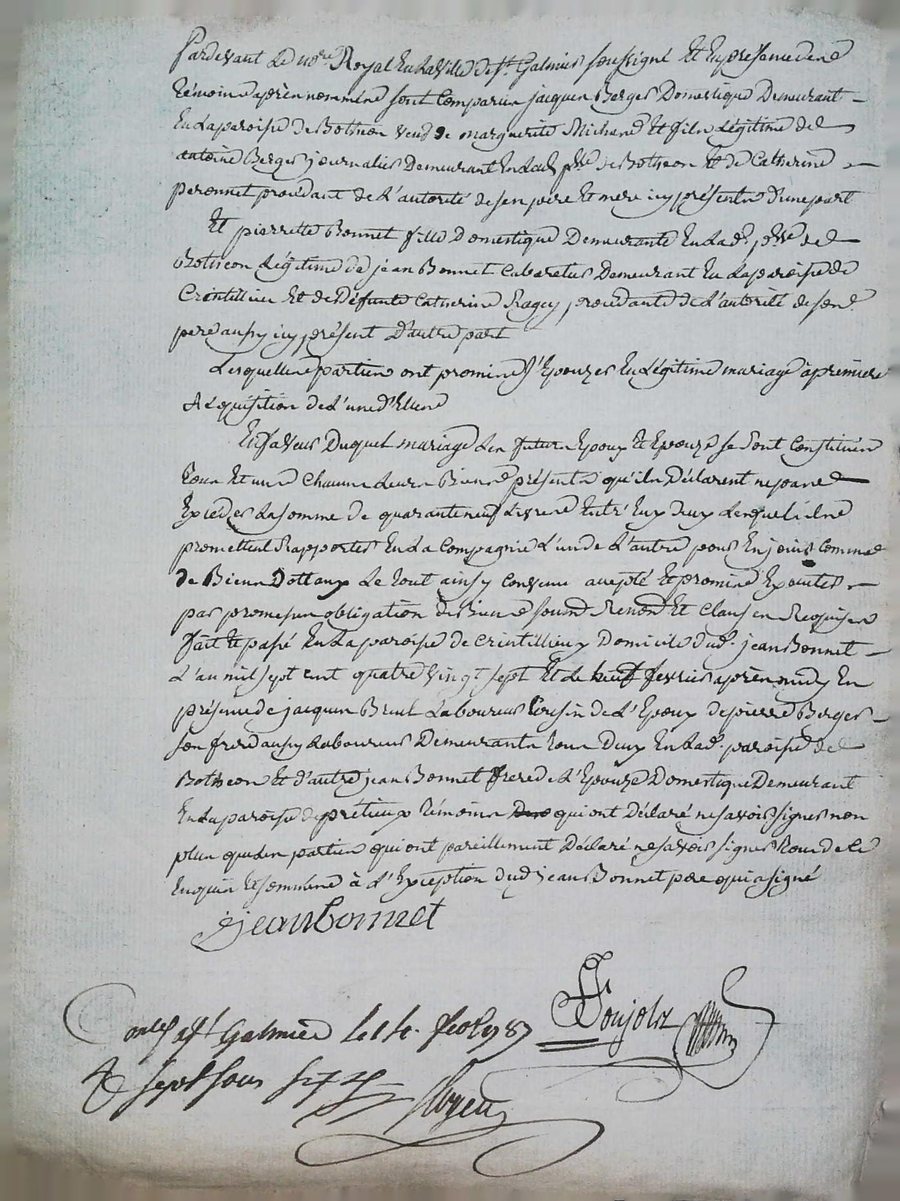 Pardevant Le no.re Royal En La Ville de S.t Galmier soussigné Et En presence des
témoins aprèn nommés sont Comparus jacques Berger Domestique Demeurant
En La paroisse de Bothéon veuf de marguerite Michand Et fils Légitime de
antoine Berger journalier Demeurant En Lad. p.sse de Botheon Et de Catherine
peronnet procédant de L'autorité de son père Et mere icy présents D'une part
Et pierrette Bonnet fille Domestique Demeurante En Lad. p.sse de
Botheon Légitime de jean Bonnet Cabaretier Demeurant En La paroisse de
Crintillieu Et de Défunte Catherine Ragey, procédante de L'autorité de son
pere aussy icy présent D'autre part
Lesquelles partien ont promis S'Epouzer En Légitime mariage à premiere
Réquisition de L'une d'Elles
En faveur Duquel mariage Les futurs Epoux Et Epouze se sont Constitués
tous Et uns Chacuns Leurs Biens présents qu'ils Déclarent ne pas
Excéder La somme de quarante neuf Livres Entre Eux deux Lesquels ils
promettent Rapporter En La Compagnie L'un de L'autre pour En jouir Comme
de Biens Dottaux Le tout ainsy convenu accepté Et promis Exécuter
par promesses obligation de Biens soumis Renon.d Et Clauses Requises
fait Et passé En La paroisse de Crintillieux Domicile dud. jean Bonnet
L'an mil sept cent quatre vingt sept Et Le neuf fevrier aprèn midy En
présence de jacques Breul Laboureur Cousin de L'Epoux de pierre Berger
son frere aussy Laboureur Demeurants tous Deux En Lad. paroisse de
Botheon Et d'autre jean Bonnet frere de L'Epouze Domestique Demeurant
En La paroisse de prétieux témoins qui ont Déclaré ne savoir signer non
plus que Les partien qui ont pareillement Déclaré ne savoir signer tous de Ce
Enquis Et sommés à L'Exception dud. jean Bonnet pere qui a signé
jean bonnet
Ponjolz
Con.lé à S.t Galmier le fev. 1787
sept sous